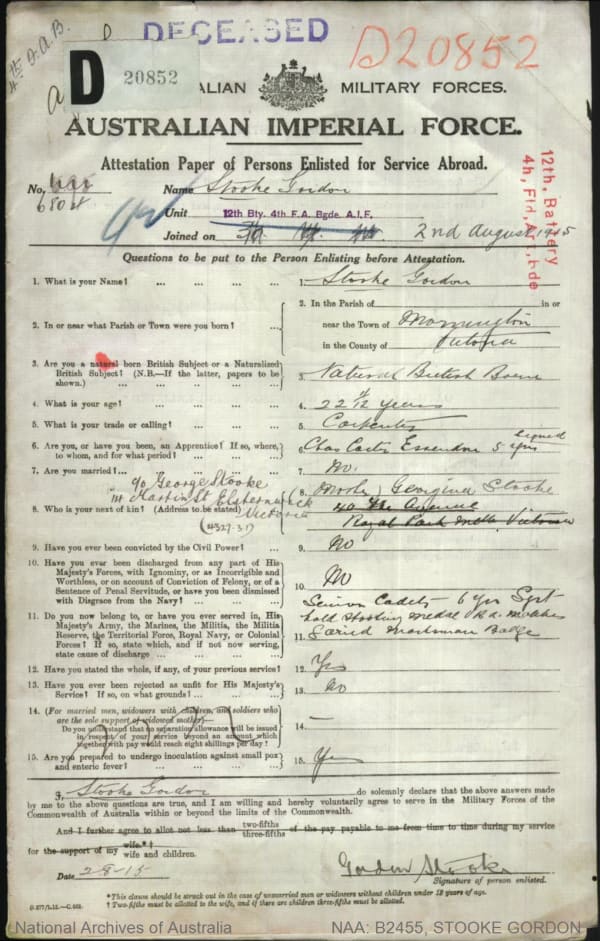 4th D.A.B.
D
DECEASED
D20852
D 20852
ALIAN MILITARY FORCES.
AUSTRALIAN IMPERIAL FORCE.
Attestation Paper of Persons Enlisted for Service Abroad.
No. 6804 Name Stooke Gordon
Unit 12th Bty. 4th F.A. Bgde. A.I.F.
Joined on 2nd August 1915
12th, Battery
4h, Fld, Art, bde
Questions to be put to the Person Enlisting before Attestation.
1. What is your Name? ... ... ... 1. Stooke Gordon
2. In or near what Parish or Town were you born? ... 2. In the Parish of in or
near the Town of Mornington
in the County of Victoria
3. Are you a natural born British Subject or a Naturalized
British Subject? (N.B.—If the latter, papers to be
shown.) ... ... ... 3. Natural British Born
4. What is your age? ... ... ... 4. 22 years
5. What is your trade or calling? ... ... 5. Carpenter
6. Are you, or have you been, an Apprentice? If so, where,
to whom, and for what period? ... ... 6. Essendon 5 yrs
7. Are you married? ... 7. No.
c/o George Stooke
Martin St Elsternwick
Victoria
8. Who is your next of kin? (Address to be stated) 8. (Mother) Georgina Stooke
40 The Avenue
Royal Park Melb. Victoria
9. Have you ever been convicted by the Civil Power? ... 9. No
10. Have you ever been discharged from any part of His
Majesty's Forces, with Ignominy, or as Incorrigible and
Worthless, or on account of Conviction of Felony, or of a
Sentence of Penal Servitude, or have you been dismissed
with Disgrace from the Navy? ... ... 10. No
11. Do you now belong to, or have you ever served in, His
Majesty's Army, the Marines, the Militia, the Militia
Reserve, the Territorial Force, Royal Navy, or Colonial
Forces? If so, state which, and if not now serving,
state cause of discharge ... 11. Senior Cadets 6 yrs Sgt
hold Shooting Medal
Marksman Badge
12. Have you stated the whole, if any, of your previous service? 12. Yes
13. Have you ever been rejected as unfit for His Majesty's
Service? If so, on what grounds? ... ... 13. No
14. (For married men, widowers with children, and soldiers who
are the sole support of widowed mother—
Do you understand that no separation allowance will be issued
in respect of your service beyond an amount which
together with pay would reach eight shillings per day? 14. —
15. Are you prepared to undergo inoculation against small pox
and enteric fever? ... ... ... 15. Yes
I, Stooke Gordon do solemnly declare that the above answers made
by me to the above questions are true, and I am willing and hereby voluntarily agree to serve in the Military Forces of the
Commonwealth of Australia within or beyond the limits of the Commonwealth.
And I further agree to allot not less than two-fifths three-fifths of the pay payable to me from time to time during my service
for the support of my wife.*† wife and children.
Date 2-8-15 Gordon Stooke
Signature of person enlisted.
*This clause should be struck out in the case of unmarried men or widowers without children under 18 years of age.
†Two-fifths must be allotted to the wife, and if there are children three-fifths must be allotted.
National Archives of Australia NAA: B2455, STOOKE GORDON